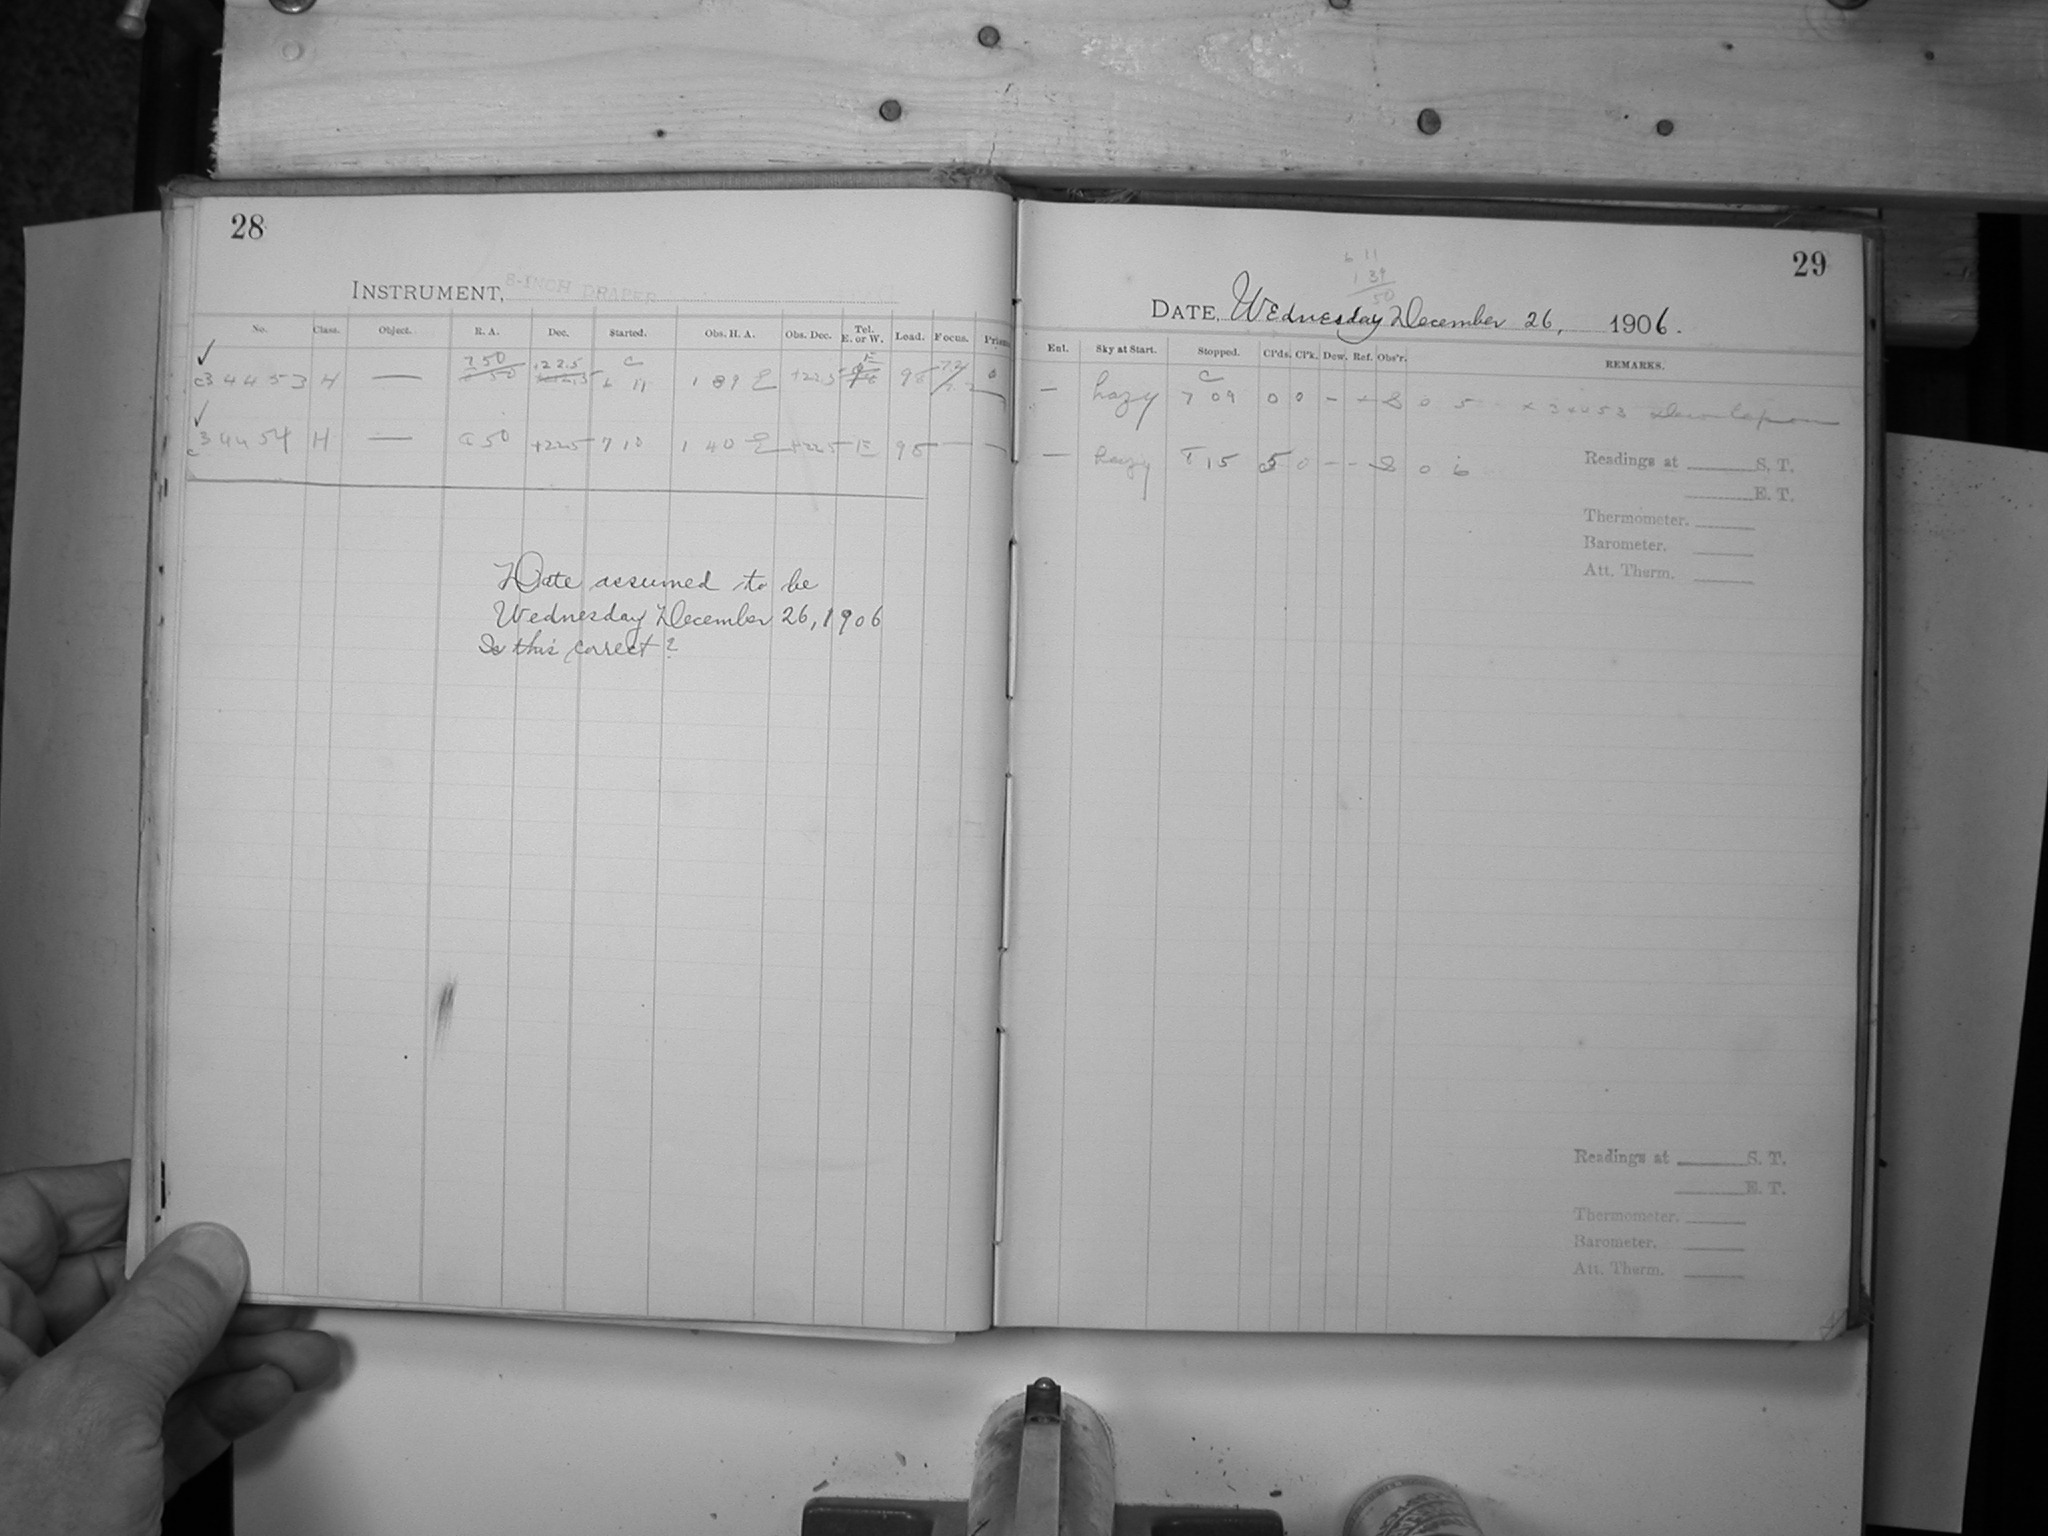 28
INSTRUMENT, 8-INCH DRAPER
No. Class. Object. R. A. Dec. Started. Obs. H. A. Obs. Dec. Tel. E. or W. Load. Focus.
c34453 H — 7 50 +22.5 6 11 1 39 E +22.5 E 98
c34454 H — 50 +22.5 7 10 1 40 E +22.5 E 98 — —
Date assumed to be
Wednesday December 26, 1906
Is this correct?
29
6 11
1 39
50
DATE, Wednesday December 26, 1906.
Ent. Sky at Start. Stopped. Cl'ds. Cl'k. Dew. Ref. Obs'r. REMARKS.
— hazy 7 09 0 0 - 8 0 5 x 34453
— hazy 15 5 0 - - 8 0 6
Readings at S. T.
E. T.
Thermometer.
Barometer.
Att. Therm.
Readings at S. T.
E. T.
Thermometer.
Barometer.
Att. Therm.